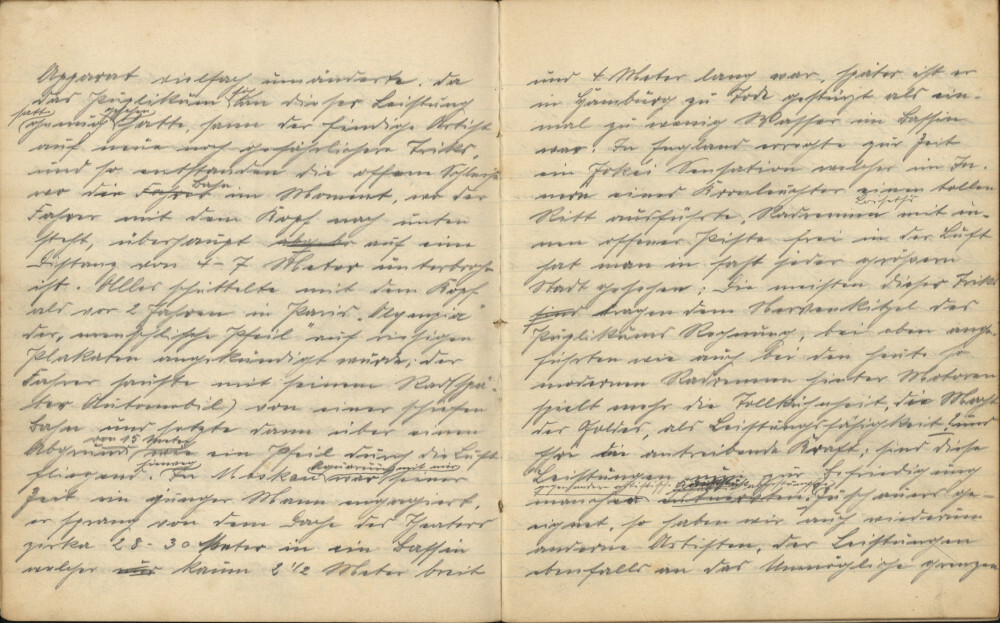 Apparat vielfach umänderte, da
das Püplikum an dieser Leistung
satt gesehen
genug hatte, sann der findige Artist
auf neue noch gefährlichere Triks,
und so entstanden die offenen Schleifen
Bahn
wo die Fahrer im Moment, wo der
Fahrer mit dem Kopf nach unten
steht, überhaupt auf eine
Distanz von 4-7 Meter unterbrochen
ist. Alles schüttelte mit dem Kopf
als vor 2 Jahren in Paris „Olympia"
der „menschliche Pfeil" auf riesigen
Plakaten angekündigt wurde; der
Fahrer sauste mit seinem Rad (spä-
ter Automobil) von einer schiefen
Bahn und setzte dann über einen
von 15 Meter
Abgrund wie ein Pfeil durch die Luft
hinweg
fliegend. In Moskau war seiner
Zeit ein junger Mann engagiert,
er sprang von dem Dache des Theaters
zirka 28-30 Meter in ein Bassin
welcher nur kaum 2 1/2 Meter breit
und 4 Meter lang war, später ist er
in Hamburg zu Tode gestürzt als ein-
mal zu wenig Wasser im Bassin
war. In England erregte zur Zeit
ein Jokei Sensation welcher im In-
nern eines Kronleuchter einen tollen
Ritt ausführte, Radrennen mit in-
nen offener Piste frei in der Luft
hat man in fast jeder größern
Stadt gesehen; Die meisten dieser Triks
sind tragen dem Nervenkitzel des
Püplikums Rechnung, bei oben ange-
führten wie auch bei den heute so
modernen Radrennen hinter Motoren
spielt mehr die Tollkühnheit, die Macht
des Goldes, als Leistungsfähigkeit und
Ehre die antreibende Kraft; sind diese
Leistungen nur zur Befriedigung
mancher Zuschauers ge-
eignet, so haben wir auch wiederum
andere Artisten, der Leistungen
ebenfalls an das Unmögliche grenzen